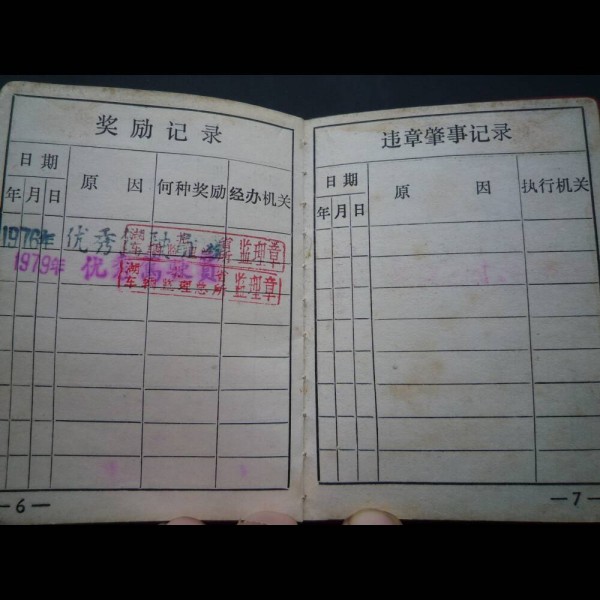 奖励记录
日期 原因 何种奖励 经办机关
年 月 日
1976年 优秀 监理章
1979年 优秀驾驶员 监理章
—6—
违章肇事记录
日期 原因 执行机关
年 月 日
—7—